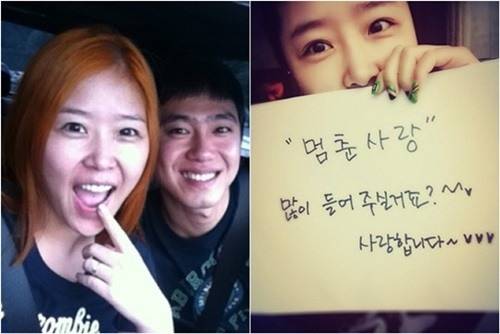 "멈춘사랑"
많이 들어 주실거죠?~♥
사랑합니다~♥♥♥
ombie